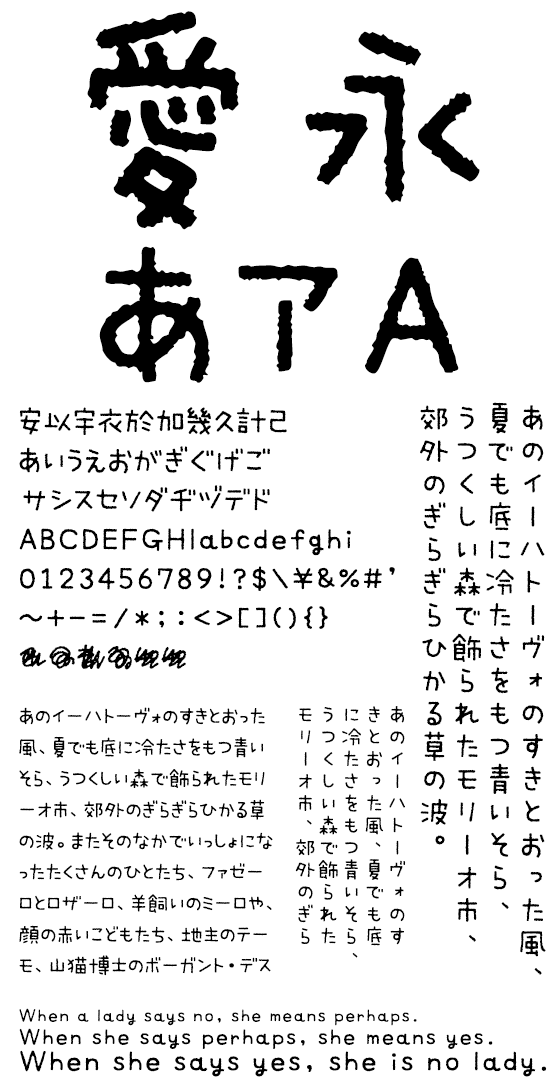 愛永
あアA
安以宇衣於加幾久計己
あいうえおがぎぐげご
サシスセソダヂヅデド
ABCDEFGHIabcdefghi
0123456789!?$\¥&%#'
～+-=/*;:<>[](){}
あのイーハトーヴォのすきとおった風、
夏でも底に冷たさをもつ青いそら、
うつくしい森で飾られたモリーオ市、
郊外のぎらぎらひかる草の波。
あのイーハトーヴォのすきとおった
風、夏でも底に冷たさをもつ青い
そら、うつくしい森で飾られたモリ
ーオ市、郊外のぎらぎらひかる草
の波。またそのなかでいっしょにな
ったたくさんのひとたち、ファゼー
ロとロザーロ、羊飼いのミーロや、
顔の赤いこどもたち、地主のテー
モ、山猫博士のボーガント・デス
あのイーハトーヴォのす
きとおった風、夏でも底
に冷たさをもつ青いそら、
うつくしい森で飾られた
モリーオ市、郊外のぎら
When a lady says no, she means perhaps.
When she says perhaps, she means yes.
When she says yes, she is no lady.